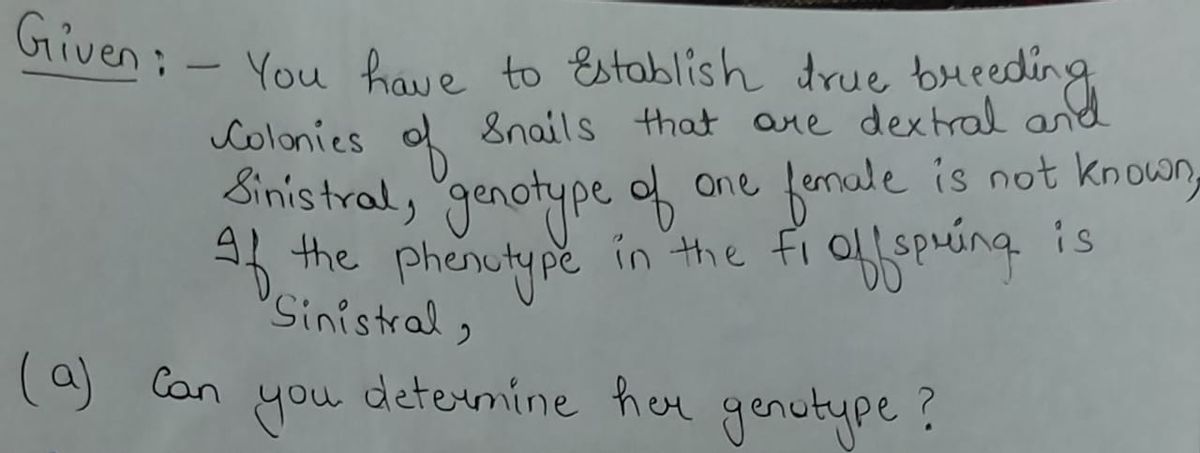 Given :- You have to Establish true breeding
Colonies of Snails that are dextral and
Sinistral, genotype of one female is not known,
If the phenotype in the F1 offspring is
Sinistral,
(a) Can you determine her genotype ?